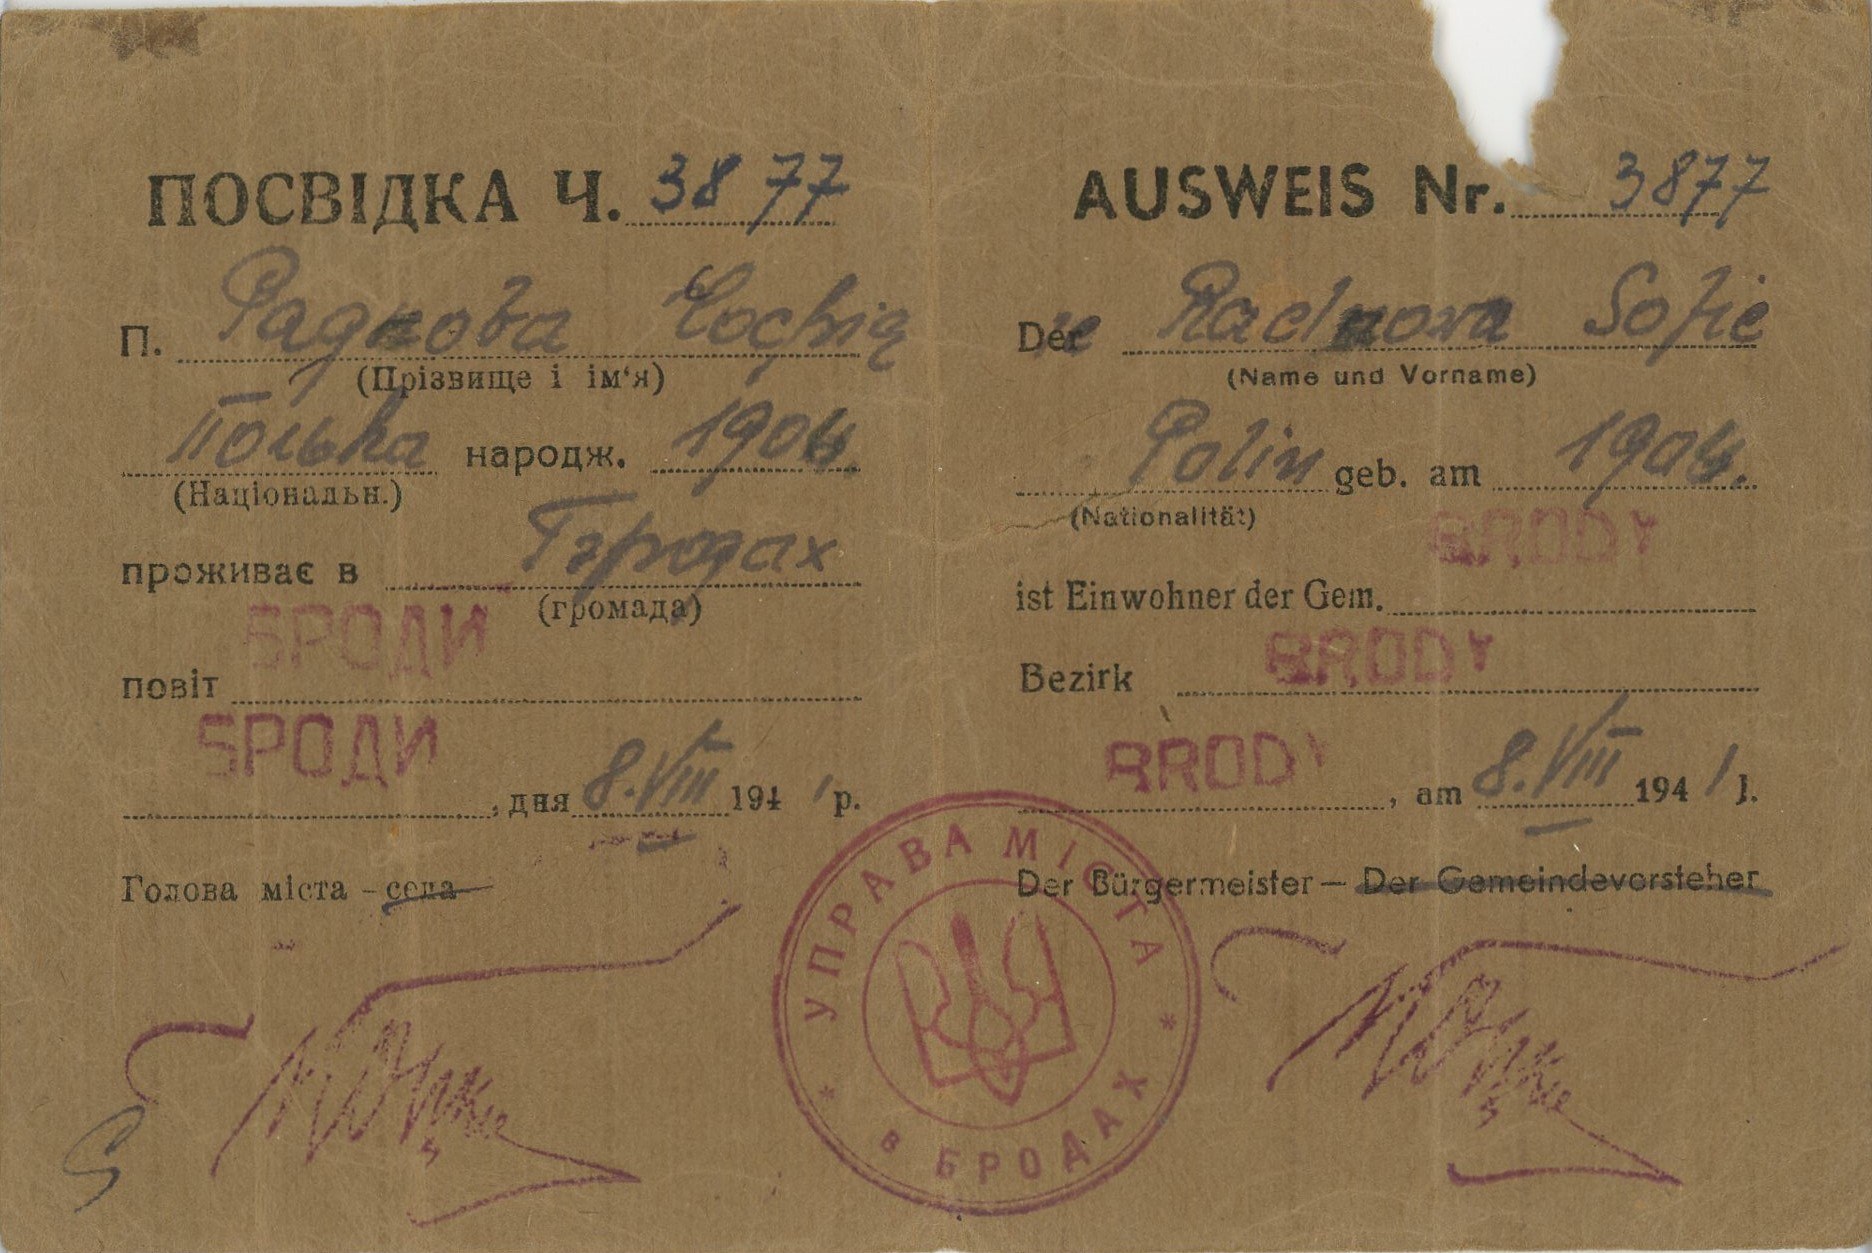 ПОСВІДКА Ч. 3877
П. Раднова Софія
(Прізвище і ім‘я)
Полька народж. 1904.
(Національн.)
проживає в Бродах
(громада)
БРОДИ
повіт
БРОДИ
, дня 8.VIII 1941 р.
Голова міста - села
AUSWEIS Nr. 3877
Die Radnowa Sofie
(Name und Vorname)
Polin geb. am 1904.
(Nationalität)
BRODY
ist Einwohner der Gem.
BRODY
Bezirk
BRODY
, am 8.VIII 1941 J.
Der Bürgermeister — Der Gemeindevorsteher
УПРАВА МІСТА
* в БРОДАХ *